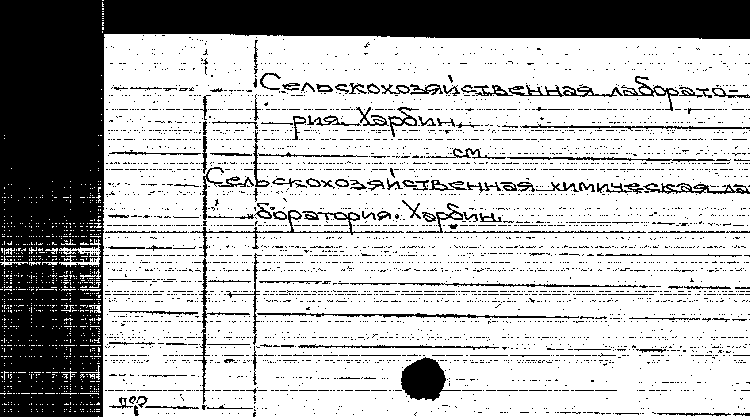 Сельскохозяйственная лаборато-
рия. Харбин.
см.
Сельскохозяйственная химическая ла
боратория. Харбин.